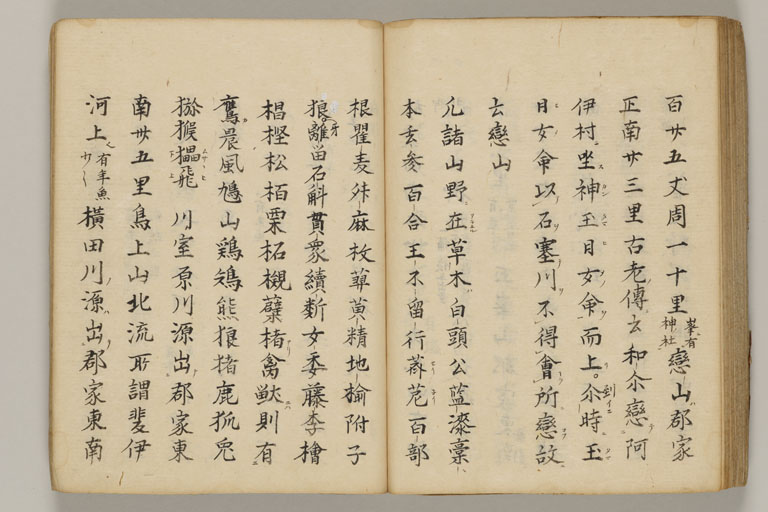 百廾五丈周一十里峯有神社戀山郡家
正南廾三里古老傳云和尒戀阿
伊村坐神玉日女命而上到尒時玉
日女命以石塞川不得會所戀故
云戀山
凡諸山野在草木白頭公藍漆藁
本玄參百合王不留行薺苨百部
根瞿麦升麻枚葜黄精地榆附子
狼牙離留石斛貫衆續断女委藤李檜
椙樫松栢栗柘槻蘗楮禽獣則有
鷹晨風鳩山鶏鴙熊狼猪鹿狐兎
猕猴飛 川室原川源出郡家東
南卅五里鳥上山北流所謂斐伊
河上有年魚少く横田川源出郡家東南